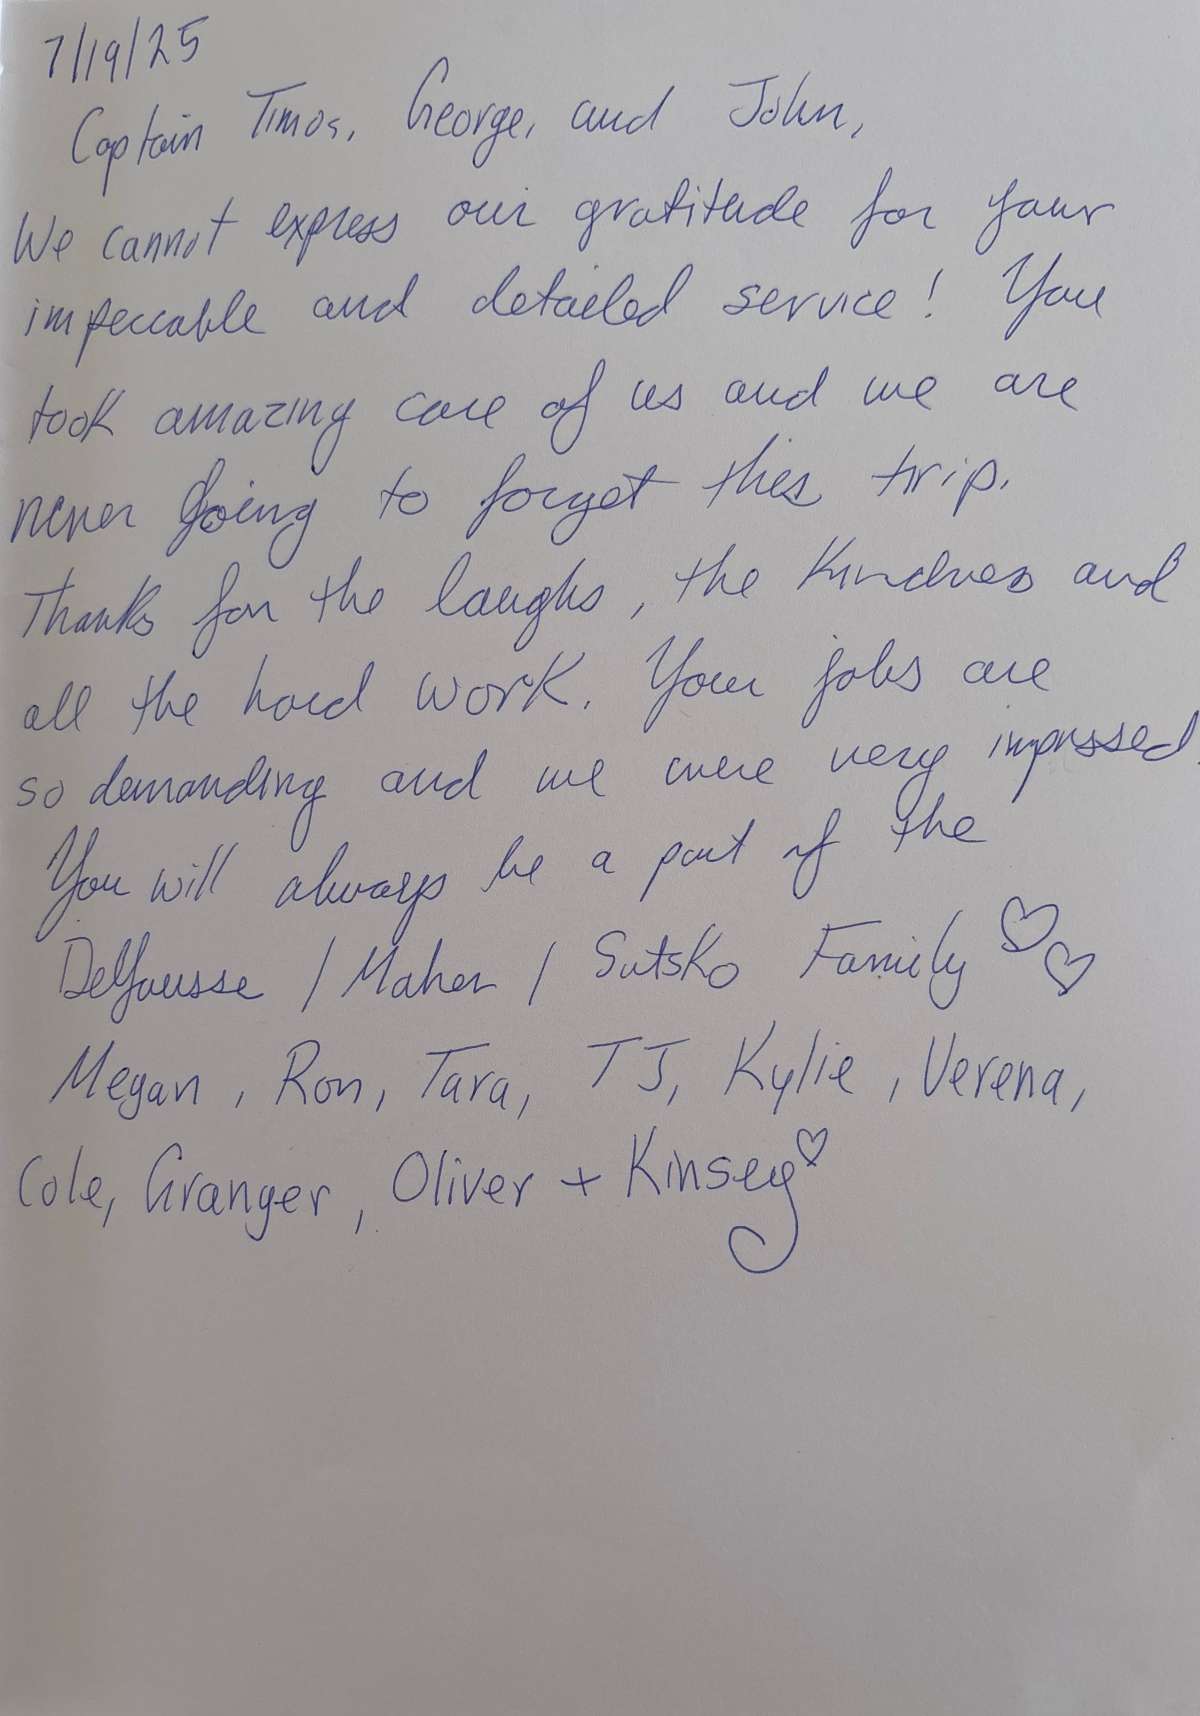 7/19/25
Captain Timos, George, and John,
We cannot express our gratitude for your
impeccable and detailed service! You
took amazing care of us and we are
never going to forget this trip.
Thanks for the laughs, the kindness and
all the hard work. Your jobs are
so demanding and we were very impressed.
You will always be a part of the
DeYousse / Maher / Sutsko Family ♡♡
Megan, Ron, Tara, TJ, Kylie, Verena,
Cole, Granger, Oliver + Kinsey♡